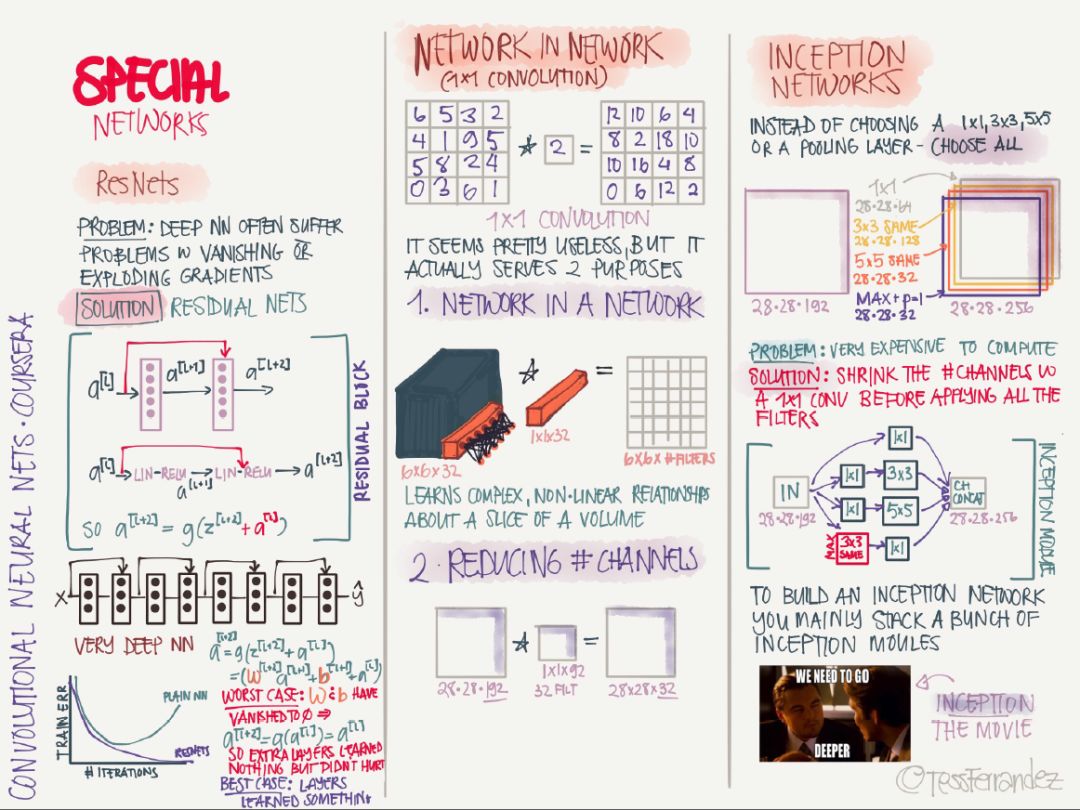 CONVOLUTIONAL NEURAL NETS · COURSERA
SPECIAL
NETWORKS
ResNets
PROBLEM: DEEP NN OFTEN SUFFER
PROBLEMS W VANISHING OR
EXPLODING GRADIENTS
SOLUTION RESIDUAL NETS
a[l] a[l+1] a[l+2]
a[l] → LIN-RELU → LIN-RELU → a[l+2]
a[l+1]
SO a[l+2] = g(z[l+2] + a[l])
RESIDUAL BLOCK
X ŷ
VERY DEEP NN
TRAIN ERR
PLAIN NN
RESNETS
# ITERATIONS
a[l+2] = g(z[l+2] + a[l])
= (W[l+2] a[l+1] + b[l+1] + a[l])
WORST CASE: W & b HAVE
VANISHED TO Ø ⇒
a[l+2] = g(a[l]) = a[l]
SO EXTRA LAYERS LEARNED
NOTHING BUT DIDN'T HURT
BEST CASE: LAYERS
LEARNED SOMETHING
NETWORK IN NETWORK
(1×1 CONVOLUTION)
6 5 3 2
4 1 9 5
5 8 2 4
0 3 6 1
* 2 =
12 10 6 4
8 2 18 10
10 16 4 8
0 6 12 2
1×1 CONVOLUTION
IT SEEMS PRETTY USELESS, BUT IT
ACTUALLY SERVES 2 PURPOSES
1. NETWORK IN A NETWORK
* =
6×6×32
1×1×32
6×6×#FILTERS
LEARNS COMPLEX, NON-LINEAR RELATIONSHIPS
ABOUT A SLICE OF A VOLUME
2. REDUCING # CHANNELS
* =
28·28·192
1×1×92
32 FILT
28×28×32
INCEPTION
NETWORKS
INSTEAD OF CHOOSING A 1×1, 3×3, 5×5
OR A POOLING LAYER - CHOOSE ALL
1×1
28·28·64
3×3 SAME
28·28·128
5×5 SAME
28·28·32
MAX + P=1
28·28·32
28·28·192
28·28·256
PROBLEM: VERY EXPENSIVE TO COMPUTE
SOLUTION: SHRINK THE #CHANNELS W
A 1×1 CONV BEFORE APPLYING ALL THE
FILTERS
1×1
IN 1×1 3×3 CH CONCAT
28·28·192 1×1 5×5 28·28·256
MAX 3×3 SAME 1×1
INCEPTION MODULE
TO BUILD AN INCEPTION NETWORK
YOU MAINLY STACK A BUNCH OF
INCEPTION MOULES
WE NEED TO GO
DEEPER
INCEPTION
THE MOVIE
@TessFerrandez